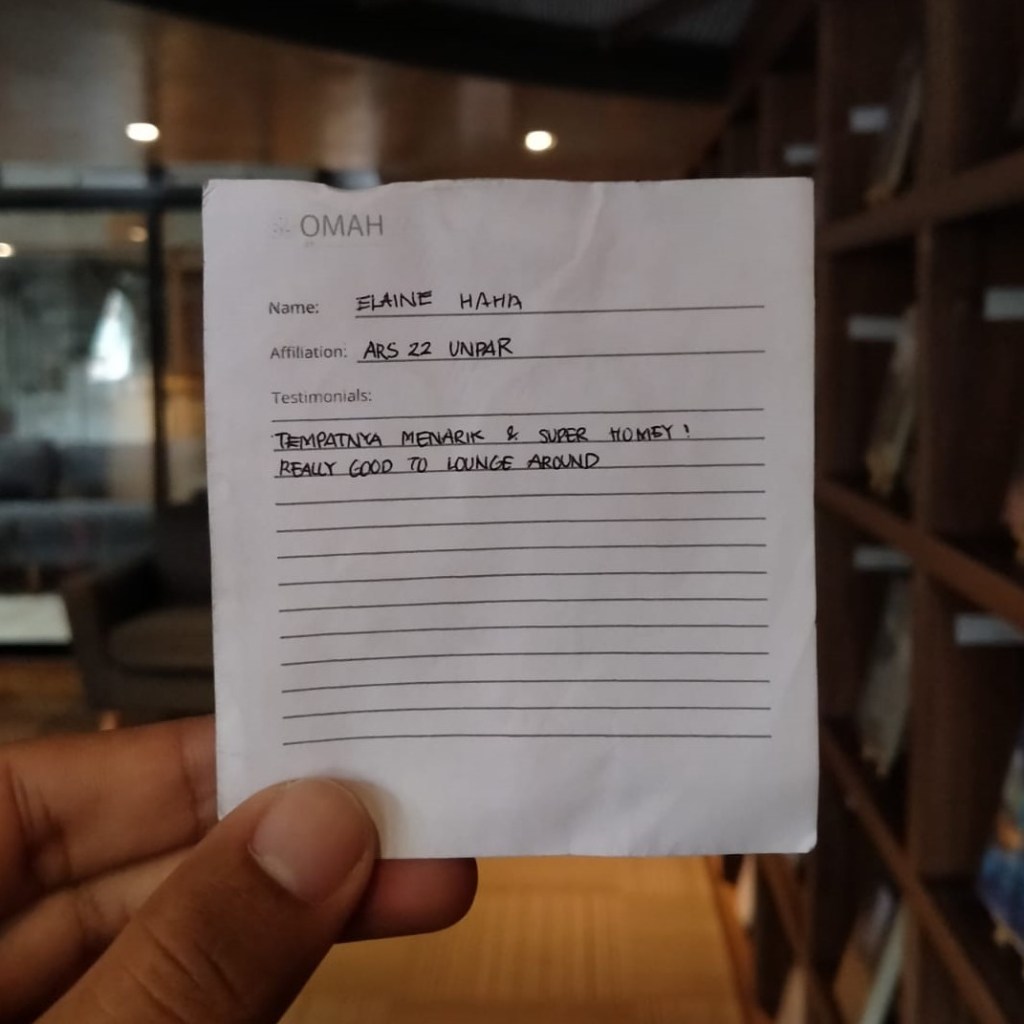 OMAH
Name: ELAINE HAHA
Affiliation: ARS 22 UNPAR
Testimonials:
TEMPATNYA MENARIK & SUPER HOMEY!
REALLY GOOD TO LOUNGE AROUND